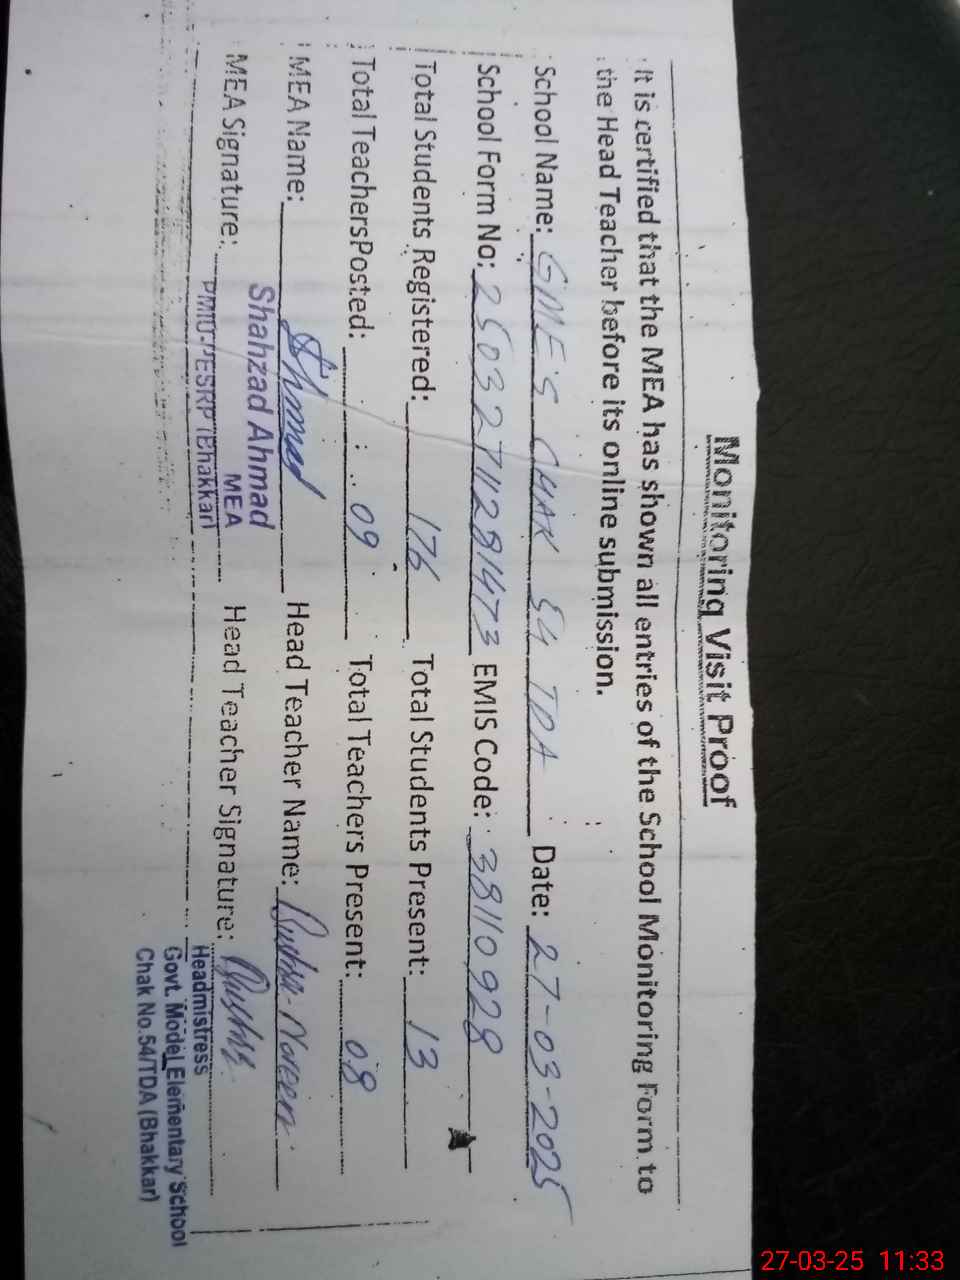 Monitoring Visit Proof
It is certified that the MEA has shown all entries of the School Monitoring Form to
the Head Teacher before its online submission.
School Name: GMES CHAK 54 TDA Date: 27-03-2025
School Form No: 25032711281473 EMIS Code: 38110928
Total Students Registered: 176 Total Students Present: 13
Total TeachersPosted: 09 Total Teachers Present: 08
MEA Name: Head Teacher Name: Noreen
MEA Signature: Head Teacher Signature:
Shahzad Ahmad
MEA
PMIU-PESRP (Bhakkar)
Headmistress
Govt. Model Elementary School
Chak No.54/TDA (Bhakkar)
27-03-25 11:33